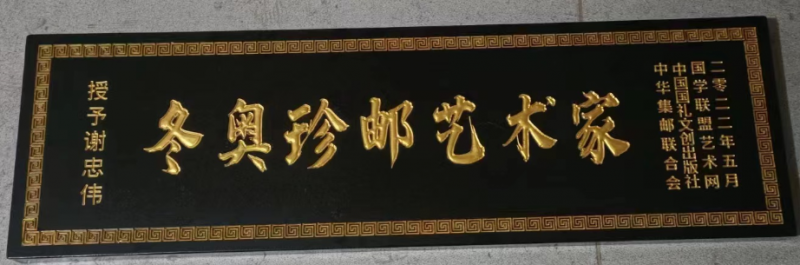 授予谢忠伟
冬奥珍邮艺术家
中华集邮联合会
中国国礼文创出版社
国学联盟艺术网
二零二二年五月